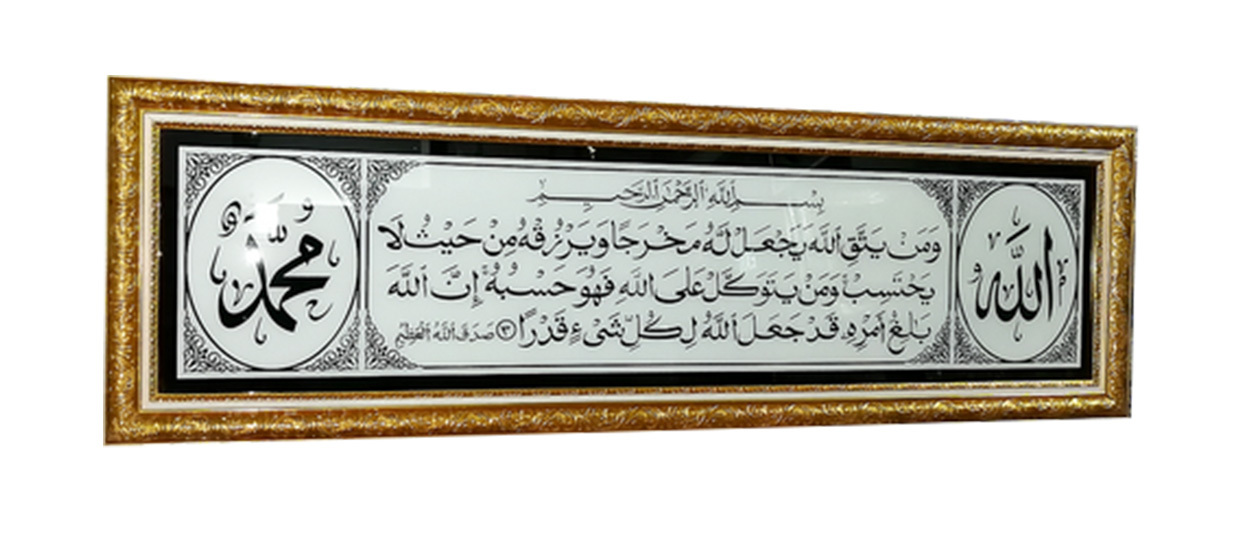 الله
بِسْمِ اللهِ الرَّحْمٰنِ الرَّحِيمِ
وَمَنْ يَتَّقِ اللهَ يَجْعَلْ لَهُ مَخْرَجًا وَيَرْزُقْهُ مِنْ حَيْثُ لَا
يَحْتَسِبُ وَمَنْ يَتَوَكَّلْ عَلَى اللهِ فَهُوَ حَسْبُهُ إِنَّ اللهَ
بَالِغُ أَمْرِهِ قَدْ جَعَلَ اللهُ لِكُلِّ شَيْءٍ قَدْرًا ﴿٣﴾ صَدَقَ اللهُ الْعَظِيْمُ
محمد